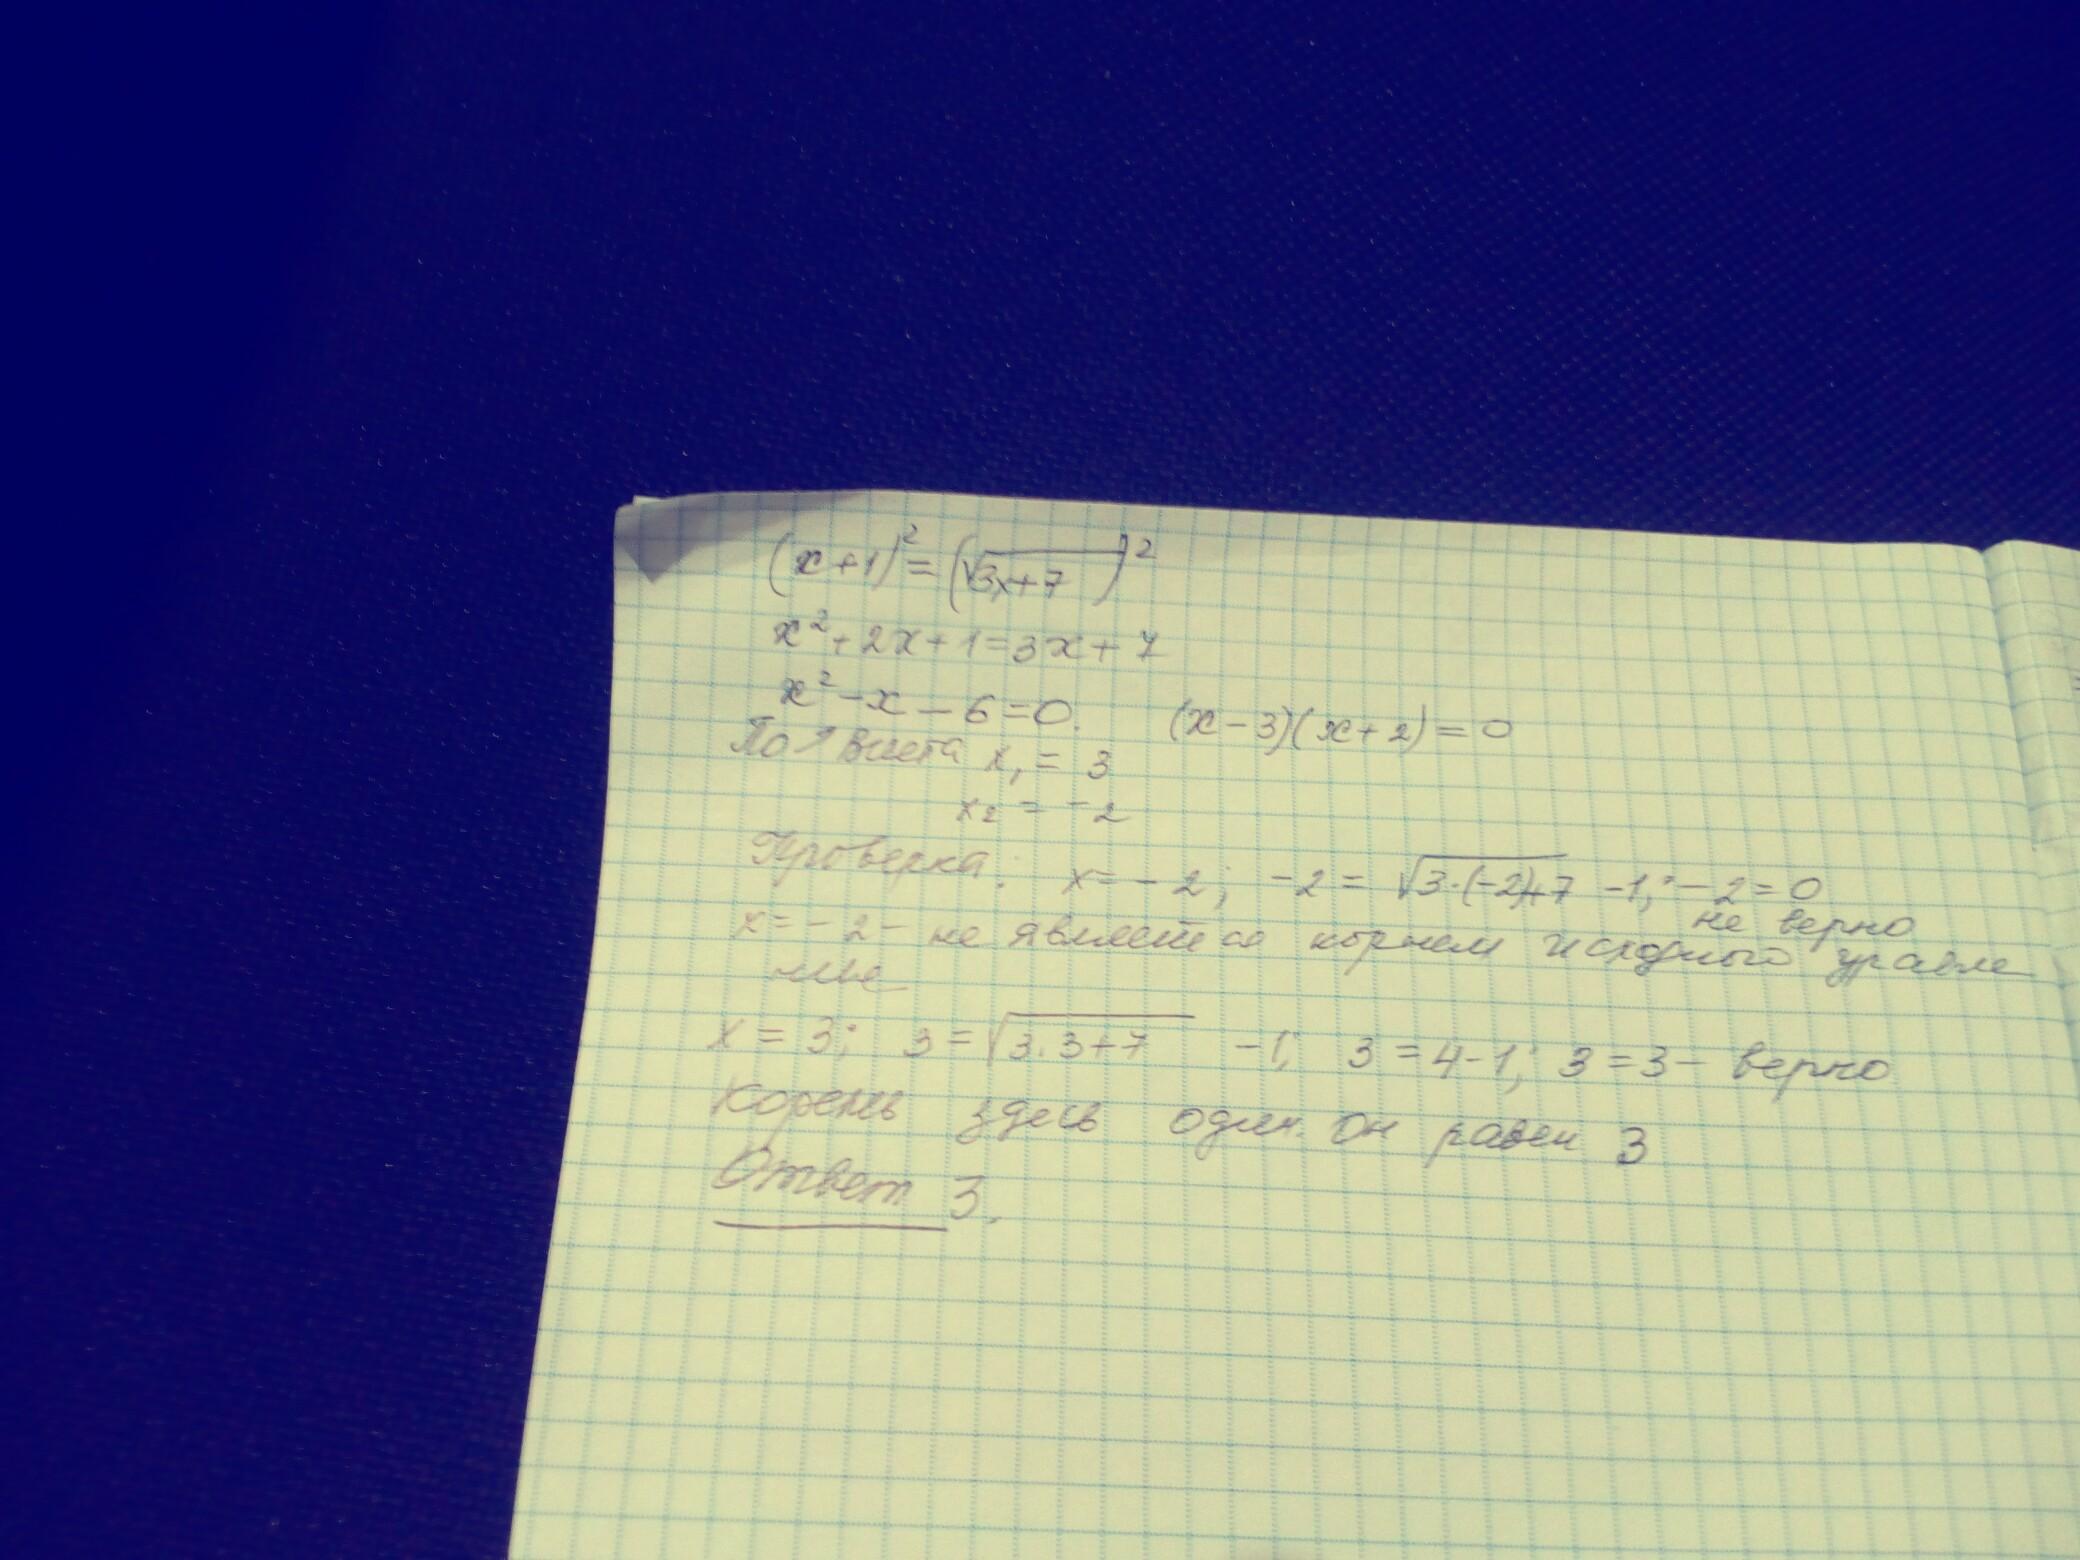 (x+1)² = (√3x+7)²
x²+2x+1=3x+7
x²-x-6=0. (x-3)(x+2)=0
По т Виета x₁ = 3
x₂ = -2
Проверка: x=-2; -2 = √3·(-2)+7 -1; -2=0
не верно
x=-2- не является корнем исходного уравне
ния
x = 3; 3=√3·3+7 -1; 3=4-1; 3=3- верно
Корень здесь один. Он равен 3
Ответ 3.